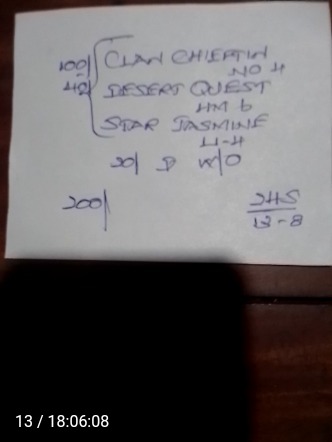 100/ CLAN CHIEFTIN
NO 4
DESERT QUEST
4M 6
STAR JASMINE
4-4
20/ D W/O
200/
245
13-8
13 / 18:06:08